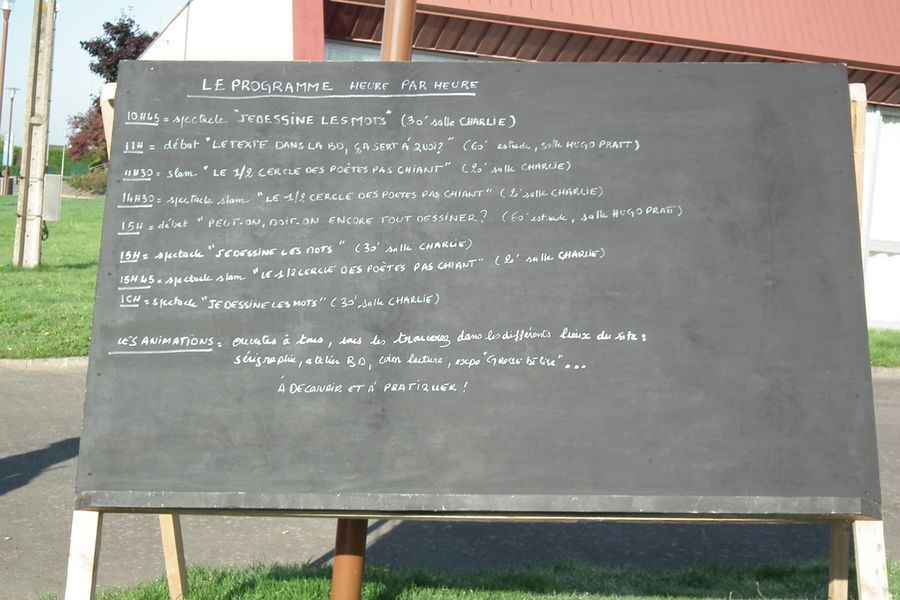 LE PROGRAMME HEURE PAR HEURE
10H45 = spectacle "JE DESSINE LES MOTS" (30' salle CHARLIE)
11H = débat "LE TEXTE DANS LA BD, ÇA SERT À QUOI?" (60' estrade, salle HUGO PRATT)
11H30 = slam "LE 1/2 CERCLE DES POÈTES PAS CHIANT" (20' salle CHARLIE)
14H30 = spectacle slam "LE 1/2 CERCLE DES POETES PAS CHIANT" (20' salle CHARLIE)
15H = débat "PEUT-ON, DOIT-ON ENCORE TOUT DESSINER? (60' estrade, salle HUGO PRATT)
15H = spectacle "JE DESSINE LES MOTS" (30' salle CHARLIE)
15H45 = spectacle slam "LE 1/2 CERCLE DES POÈTES PAS CHIANT" (20' salle CHARLIE)
16H = spectacle "JE DESSINE LES MOTS" (30' salle CHARLIE)
LES ANIMATIONS = ouvertes à tous, vous les trouverez dans les différents lieux du site :
sérigraphie, atelier BD, coin lecture, expo "GROSSE BÉTISE"...
À DECOUVRIR ET À PRATIQUER !